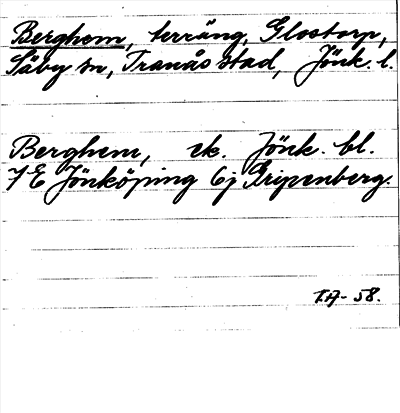 Berghem, terräng, Glostorp,
Säby sn, Tranås stad, Jönk. l.
Berghem, ek. Jönk. bl.
7 E Jönköping 6j Gripenberg.
T.A- 58.